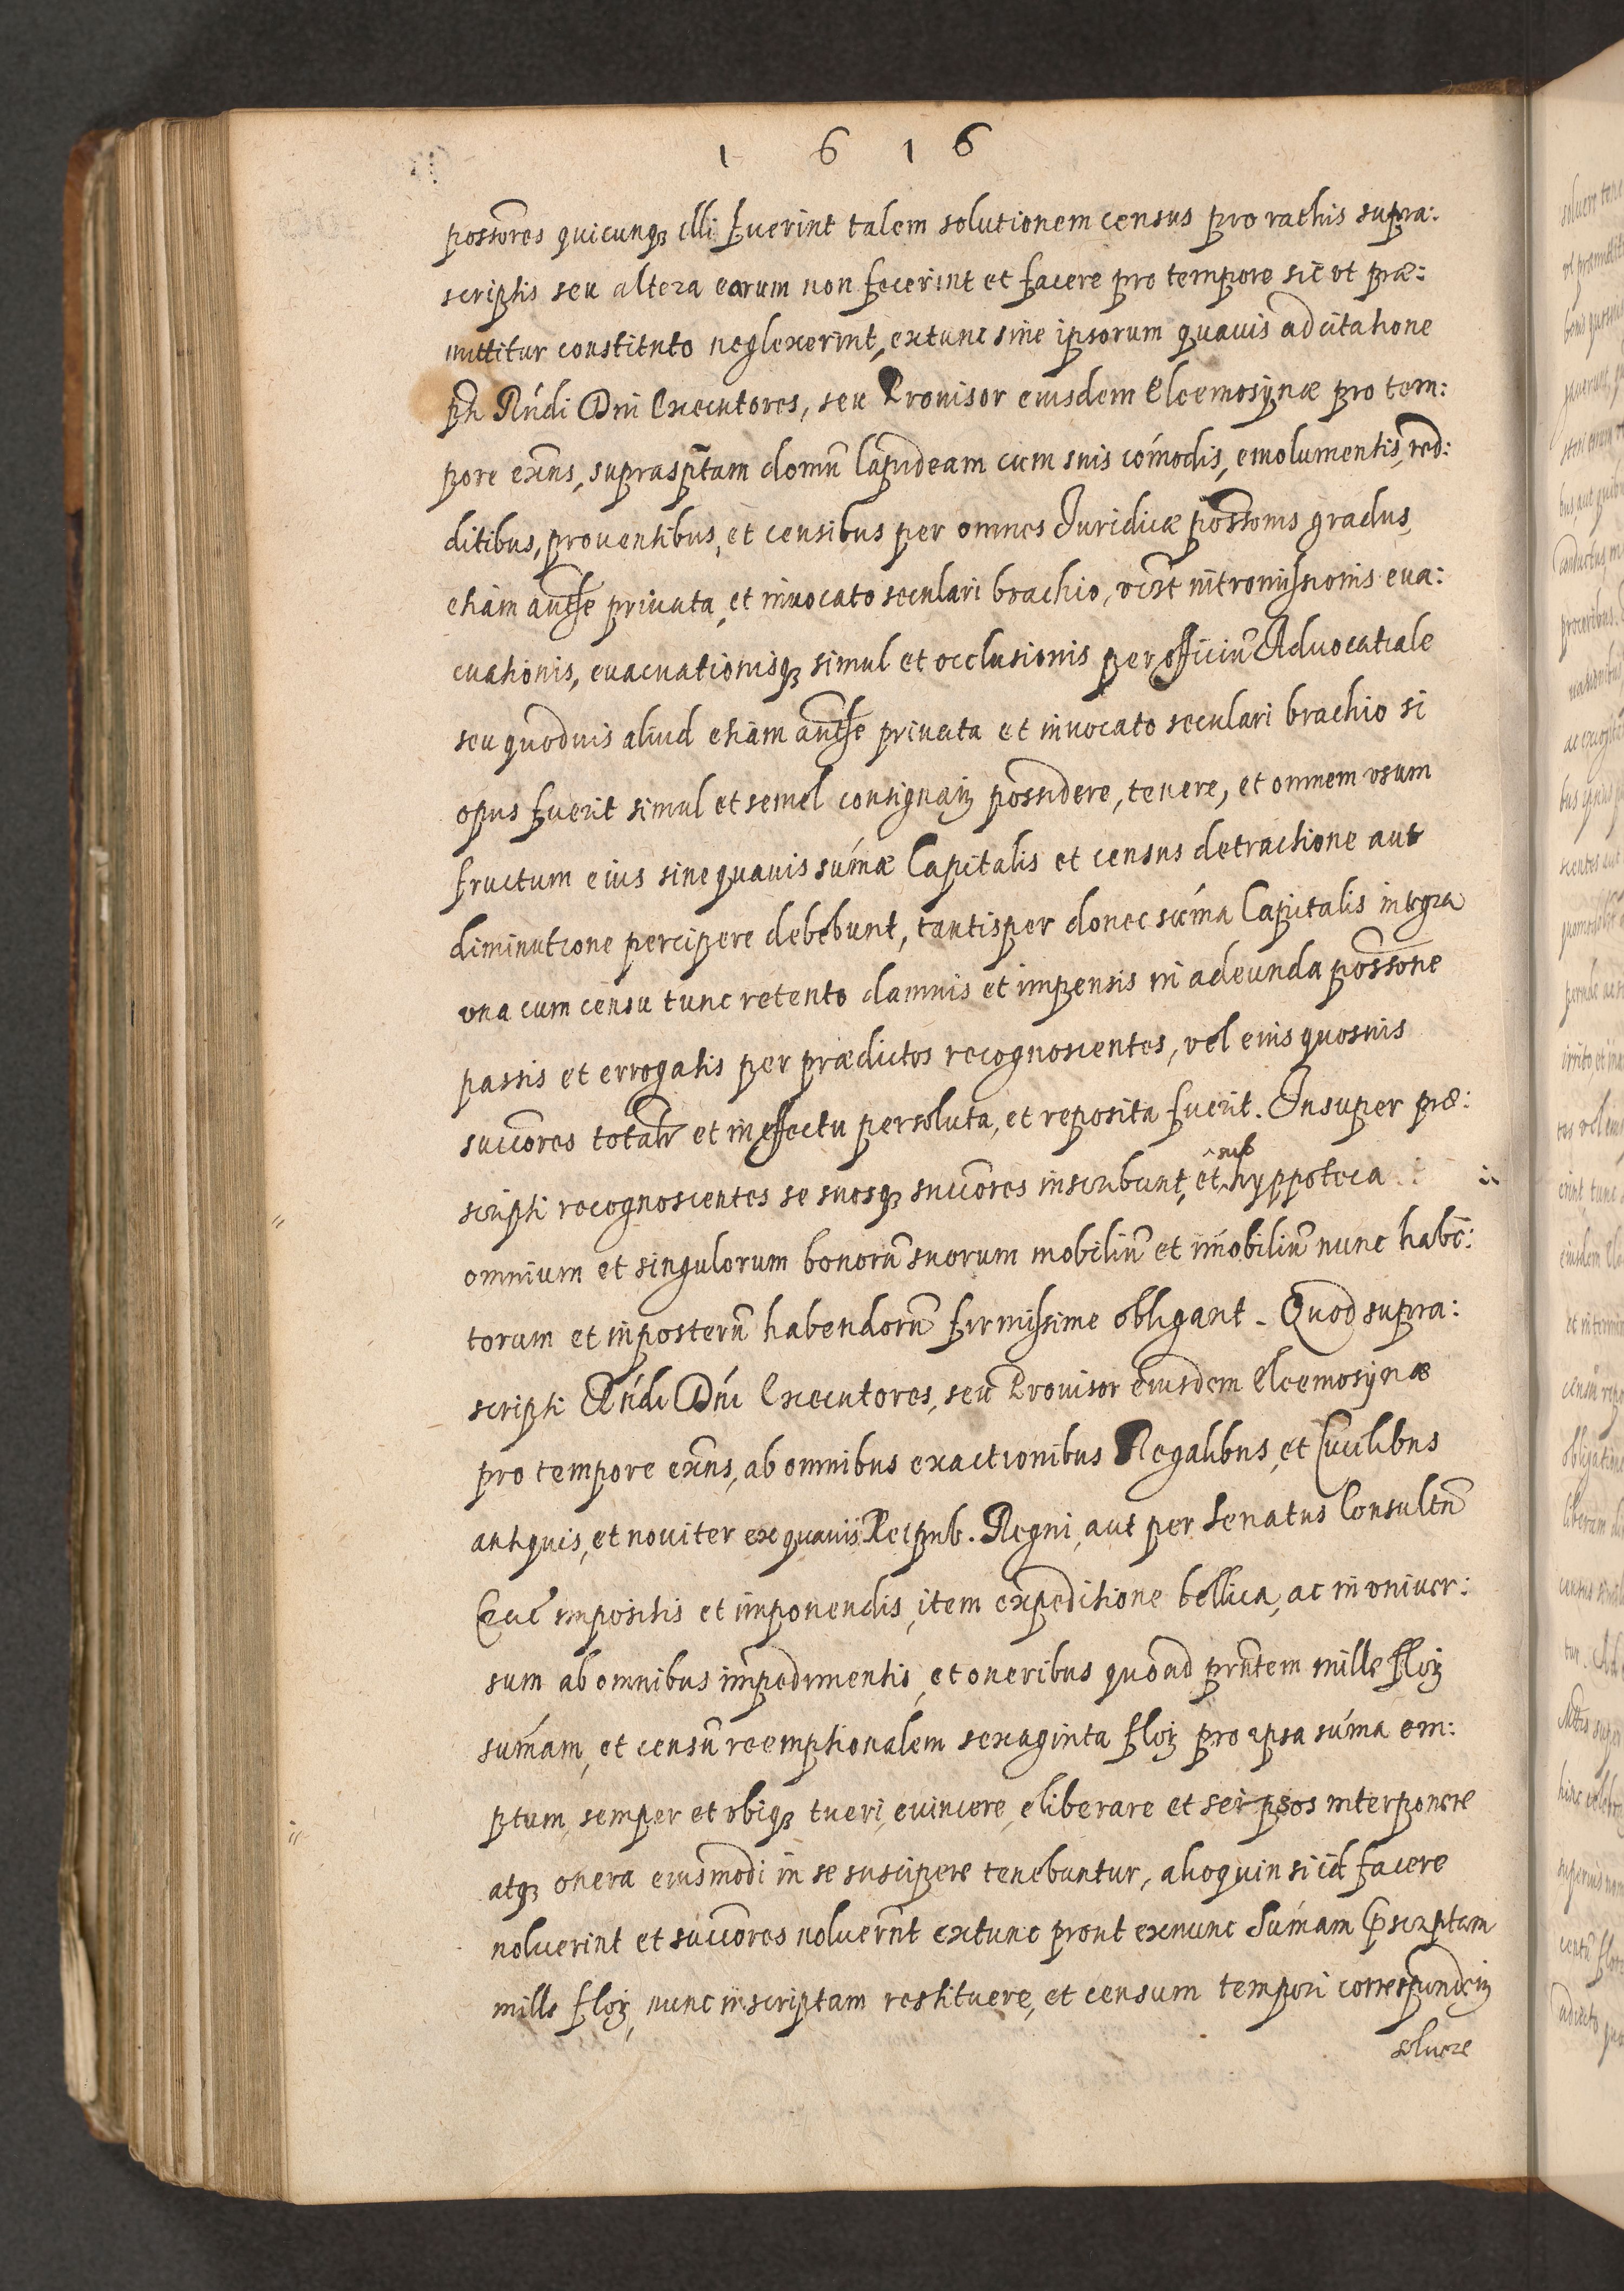 1 6 1 6
possores quicunqȝ illi fuerint talem solutionem census pro rathis supra:
scriptis seu altera earum non fecerint et facere pro tempore sic vt præ:
mittitur constituto neglexerint, extunc sine ipsorum quauis adcitatione
Rñdi Dni Executores, seu Prouisor eiusdem Eleemosynæ pro tem:
pore exñs, supraspt̃am domũ lapideam cum suis com̃odis, emolumentis, red:
ditibus, prouentibus, et censibus per omnes Iuridicæ possonis gradus,
etiam priuata, et inuocato seculari brachio, intromissionis eua:
cuationis, euacuationisqȝ simul et occlusionis per officiũ Aduocatiale
seu quoduis aliud etiam priuata et inuocato seculari brachio si
opus fuerit simul et semel possidere, tenere, et omnem vsum
fructum eius sine quauis sum̃æ Capitalis et census detractione aut
diminutione percipere debebunt, tantisper donec sum̃a Capitalis integra
vna cum censu tunc retento damnis et impensis in adeunda possone
passis et errogatis per prædictos recognoscentes, vel eius quosuis
succores totalr et in effectu persoluta, et reposita fuerit. Insuper præ:
scripti recognoscentes se suosqȝ succores inscribunt, et ^sub hyppoteca
omnium et singulorum bonorũ suorum mobiliũ et im̃obiliũ nunc habi:
torum et inposterũ habendorũ firmissime obligant. Quod supra:
scripti Rñdi Dni Executores, seu Prouisor eiusdem Eleemosynæ
pro tempore exñs, ab omnibus exactionibus Regalibus, et Ciuilibus
antiquis, et nouiter ex quauis Reipub. Regni, aut per Senatus Consultũ
impositis et imponendis, item expeditione bellica, ac in vniuer:
sum ab omnibus impedimentis, et oneribus quoad prñtem mille floȝ
sum̃am, et censũ reemptionalem sexaginta floȝ pro ipsa sum̃a em:
ptum, semper et vbiqȝ tueri, euincere, eliberare et seipsos interponere
atqȝ onera eiusmodi in se suscipere tenebuntur, alioquin si id facere
noluerint et succores noluerint extunc prout exnunc Sum̃am
mille floȝ, nunc inscriptam restituere, et censum tempori correspondeñ
soluere